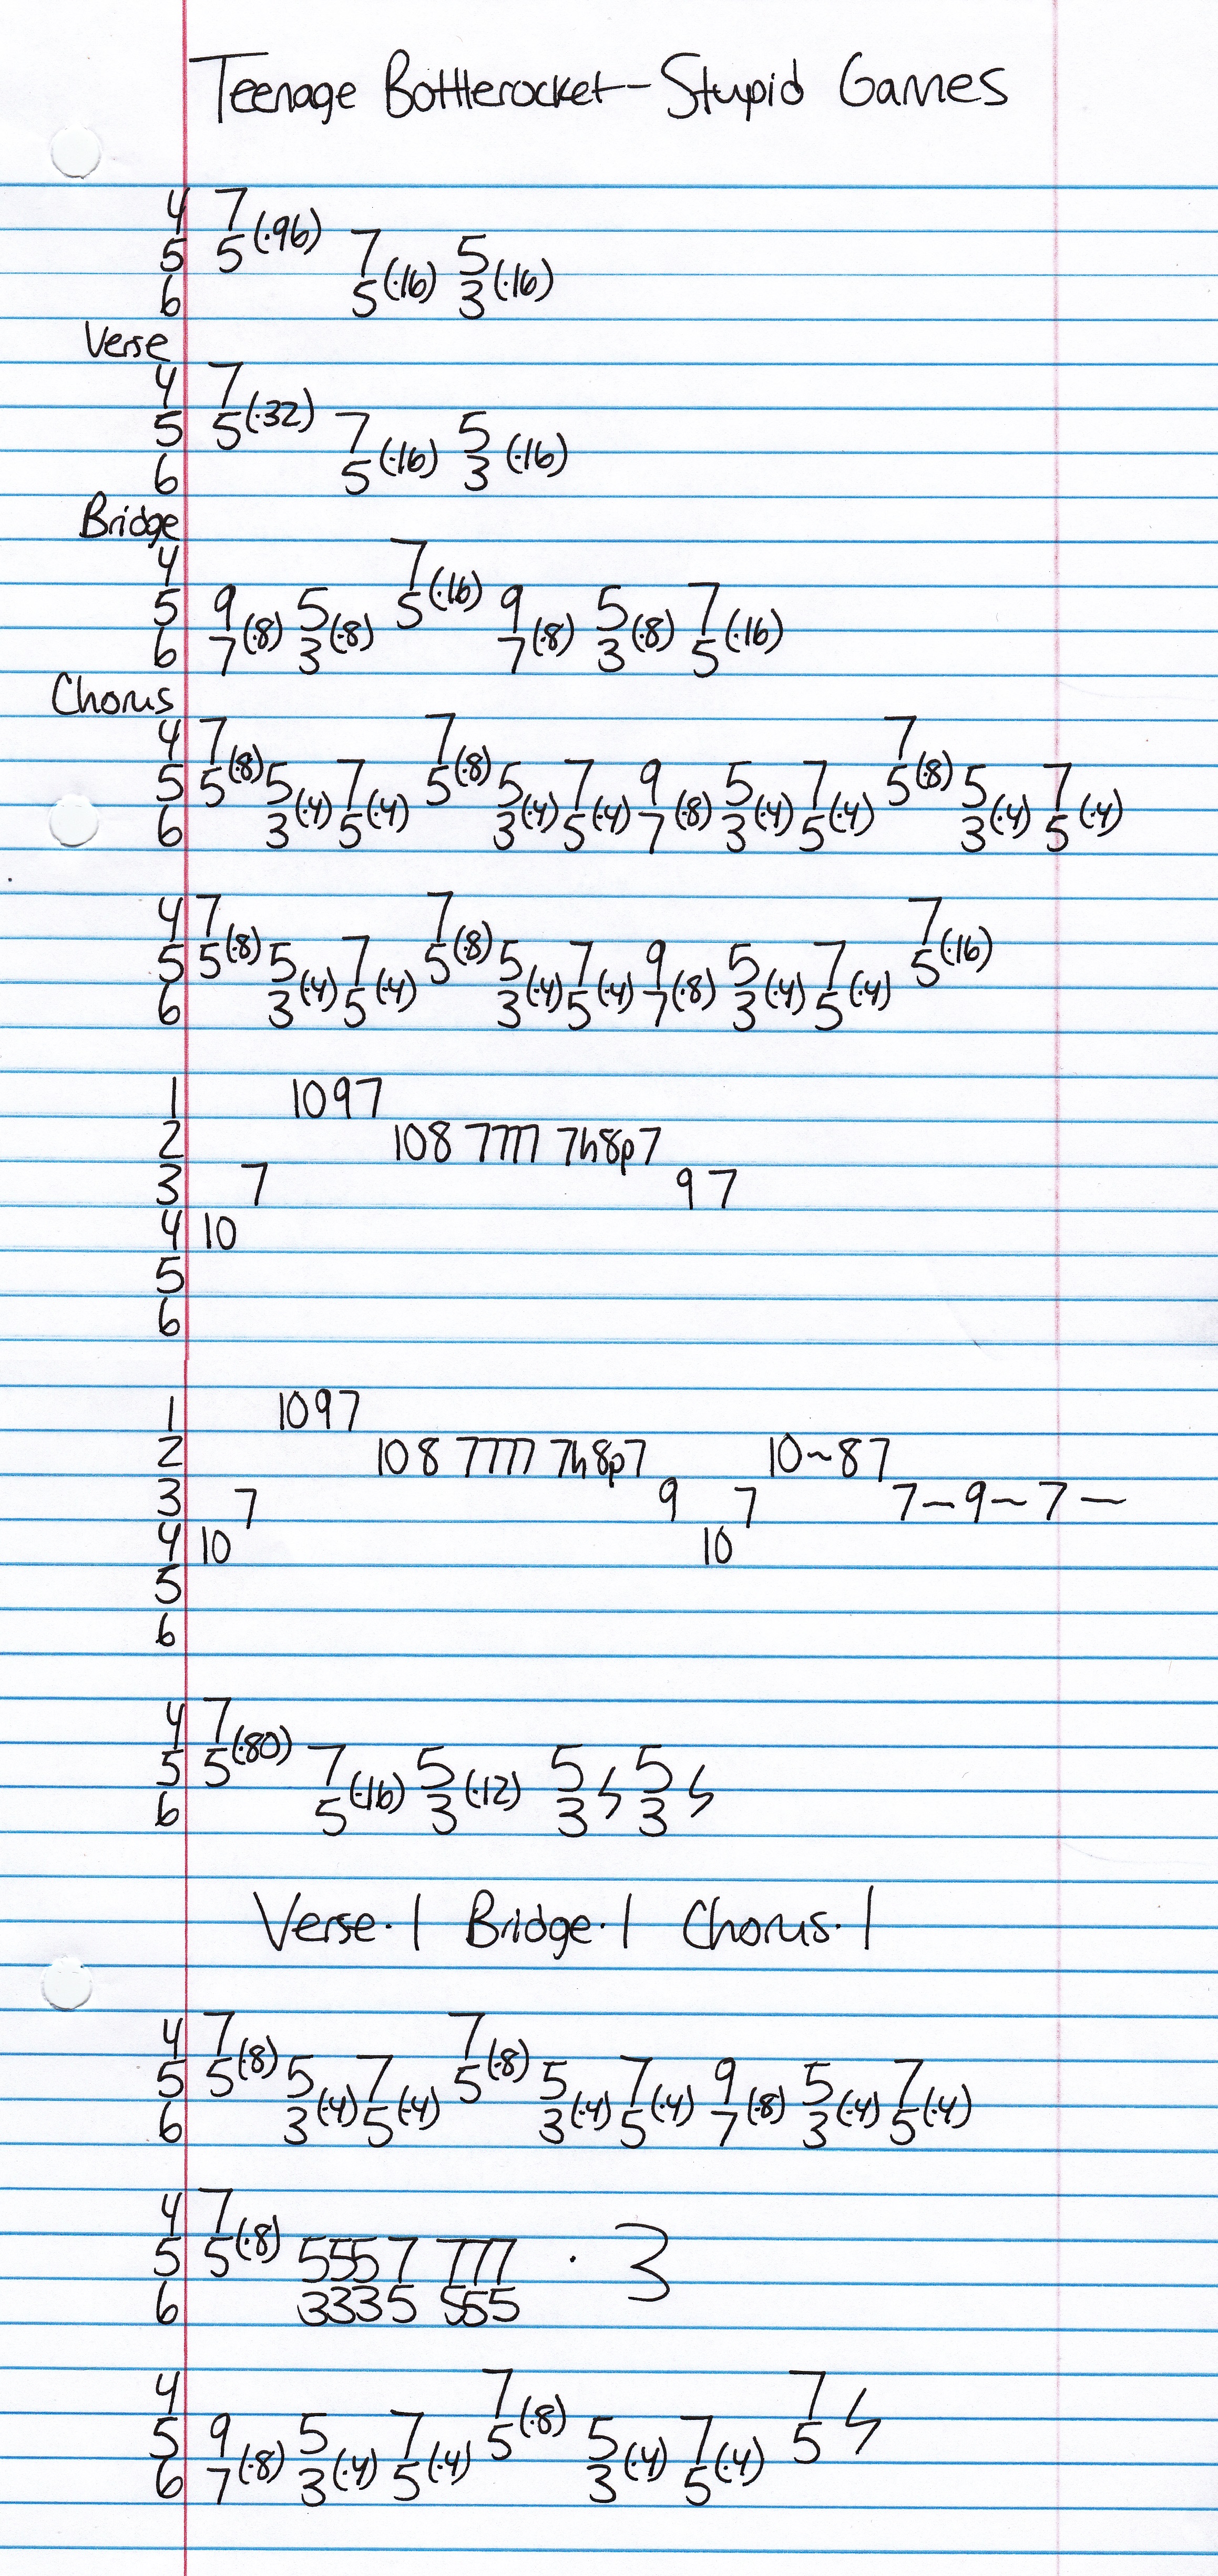 Teenage Bottlerocket - Stupid Games
4 7
5 5(·96) 7 5
6 5(·16) 3(·16)
Verse
4 7
5 5(·32) 7 5
6 5(·16) 3(·16)
Bridge
4 7
5 9 5 5(·16) 9 5 7
6 7(·8) 3(·8) 7(·8) 3(·8) 5(·16)
Chorus
4 7 7 7
5 5(·8) 5 7 5(·8) 5 7 9 5 7 5(·8) 5 7
6 3(·4) 5(·4) 3(·4) 5(·4) 7(·8) 3(·4) 5(·4) 3(·4) 5(·4)
4 7 7 7
5 5(·8) 5 7 5(·8) 5 7 9 5 7 5(·16)
6 3(·4) 5(·4) 3(·4) 5(·4) 7(·8) 3(·4) 5(·4)
1 10 9 7
2 10 8 7777 7h8p7
3 7 9 7
4 10
5
6
1 10 9 7
2 10 8 7777 7h8p7 10~87
3 7 9 7 7~9~7~
4 10 10
5
6
4 7
5 5(·80) 7 5 5 5
6 5(·16) 3(·12) 3 3
Verse·1 Bridge·1 Chorus·1
4 7 7
5 5(·8) 5 7 5(·8) 5 7 9 5 7
6 3(·4) 5(·4) 3(·4) 5(·4) 7(·8) 3(·4) 5(·4)
4 7
5 5(·8) 5557 777 · 3
6 3335 555
4 7 7
5 9 5 7 5(·8) 5 7 5
6 7(·8) 3(·4) 5(·4) 3(·4) 5(·4)